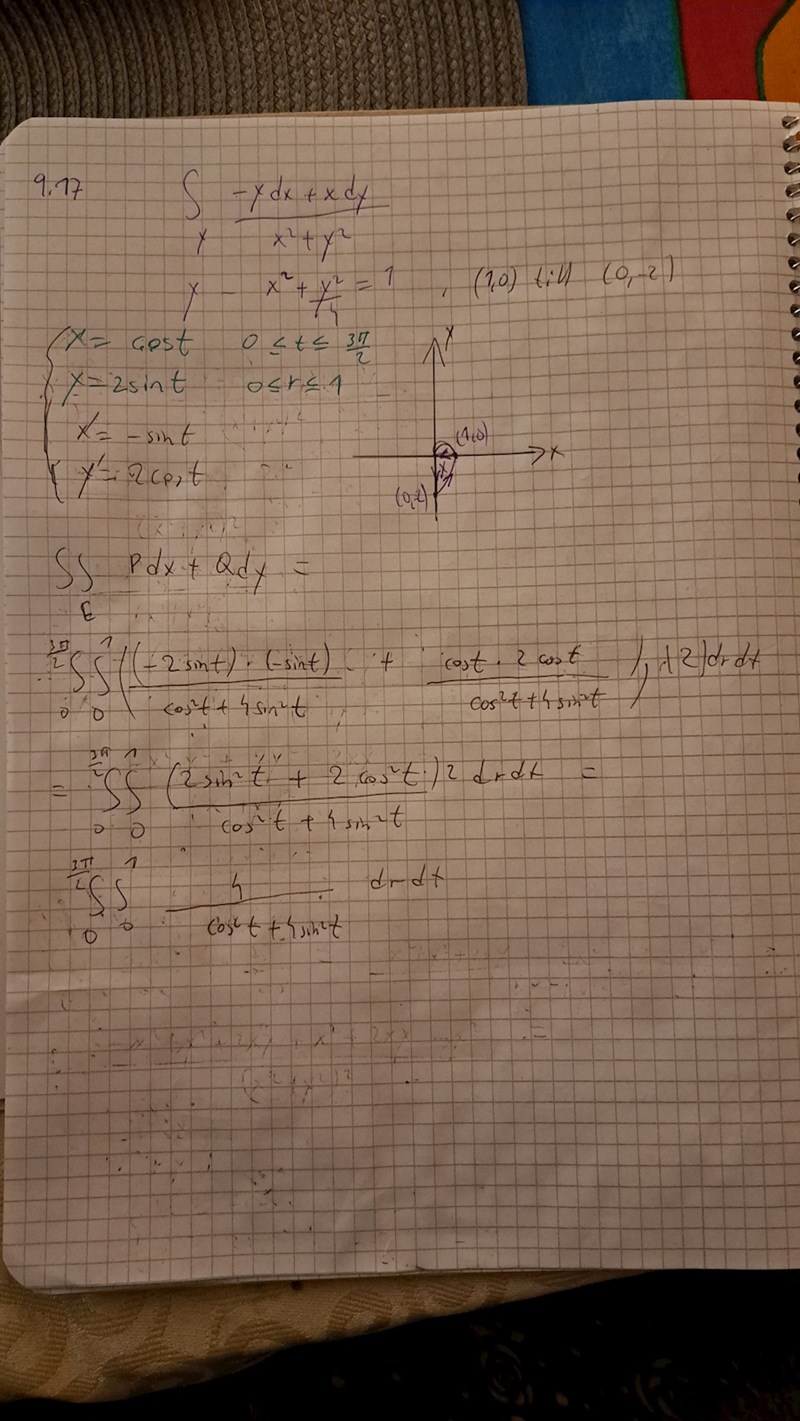 9.17 ∫γ (-ydx + xdy)/(x² + y²)
γ - x² + y²/4 = 1 , (1,0) till (0,-2)
x = cost 0 ≤ t ≤ 3π/2
y = 2sint 0 ≤ r ≤ 1
x' = -sint
y' = 2cost
y
(1,0)
x
(0,-2)
∬E Pdx + Qdy =
∫₀^(3π/2) ∫₀^1 ( ((-2sint)·(-sint))/(cos²t + 4sin²t) + (cost · 2cost)/(cos²t + 4sin²t) ) · |2| dr dt
= ∫₀^(3π/2) ∫₀^1 (2sin²t + 2cos²t)2/(cos²t + 4sin²t) dr dt =
∫₀^(3π/2) ∫₀^1 4/(cos²t + 4sin²t) dr dt